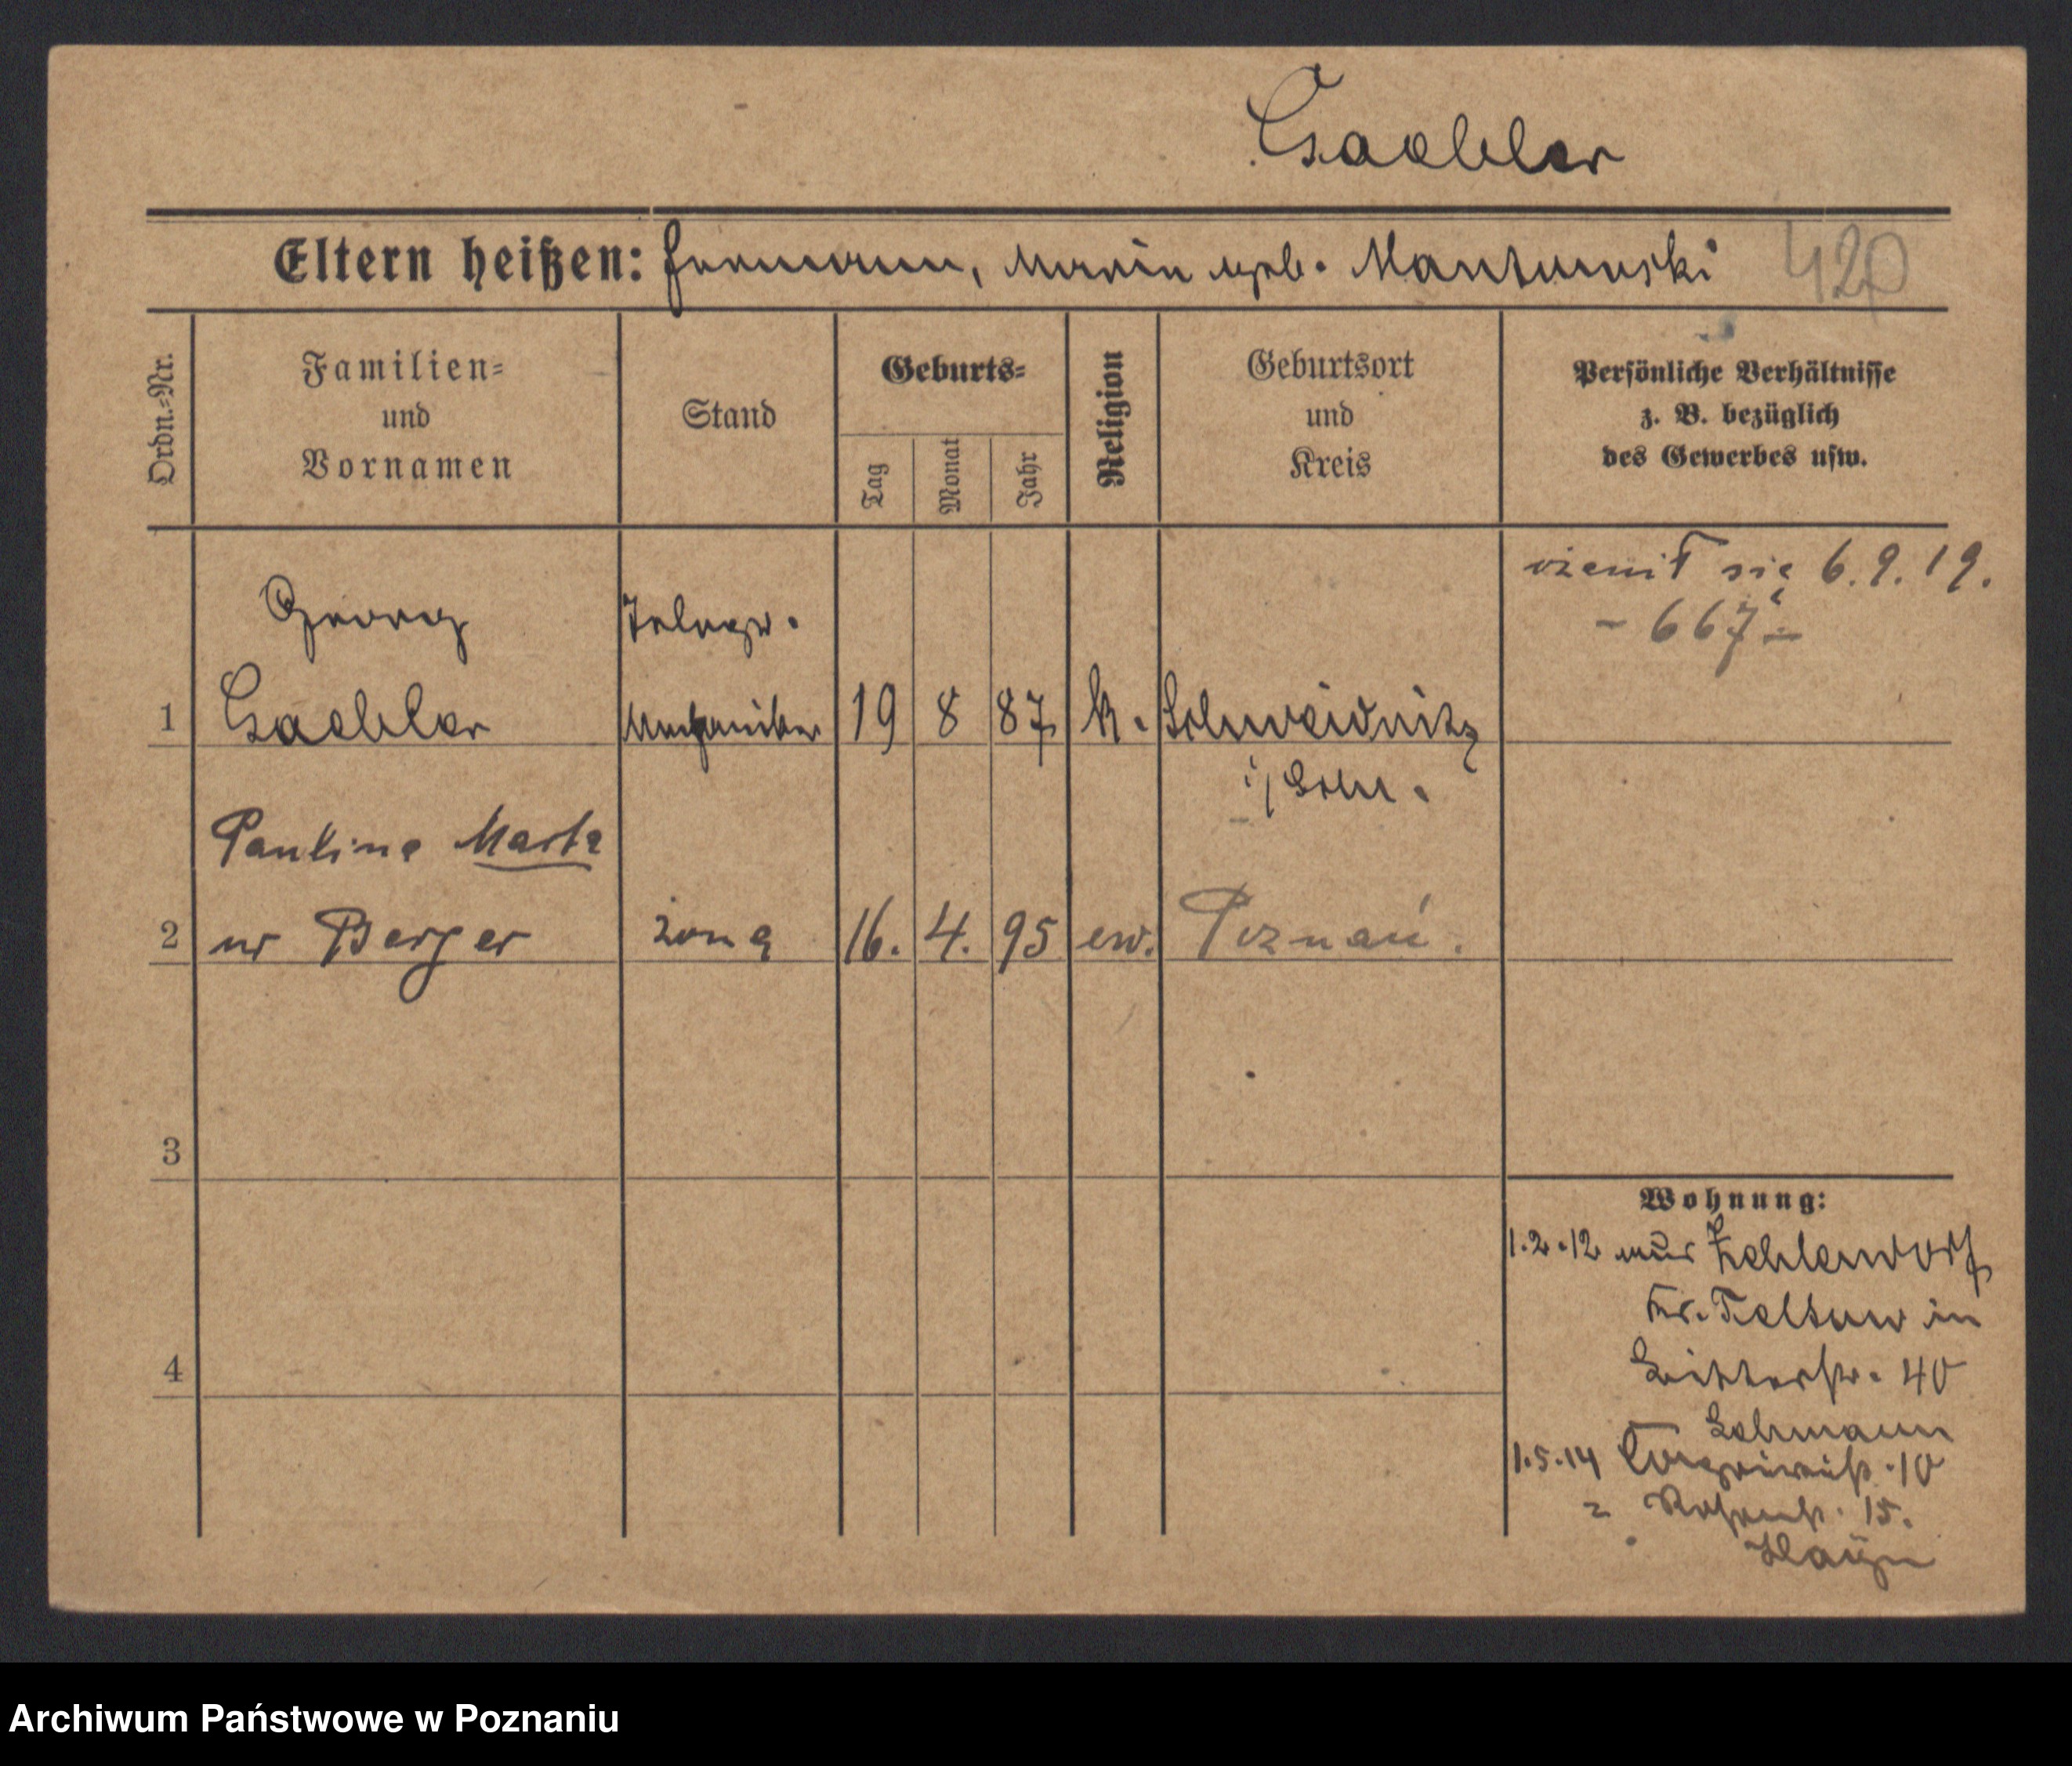 Gaebler
Eltern heißen: Hermann, Maria geb. Mantowski
420
Ordn.-Nr.
Familien-
und
Vornamen
Stand
Geburts-
Tag
Monat
Jahr
Religion
Geburtsort
und
Kreis
Persönliche Verhältnisse
z. B. bezüglich
des Gewerbes usw.
ożenił się 6.9.19.
- 667 -
Georg
Telegr.
1 Gaebler Mechaniker 19 8 87 k. Schweidnitz
i/Schl.
Paulina Marta
2 ur Berger żona 16. 4. 95 ew. Poznań.
3
Wohnung:
1.2.12 aus Zehlendorf
Kr. Teltow in
4
Ritterstr. 40
Lehmann
1.5.14 10
15.